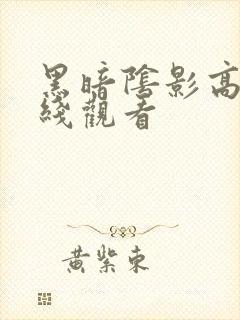 黑暗陰影高
綫觀看
黃紫東